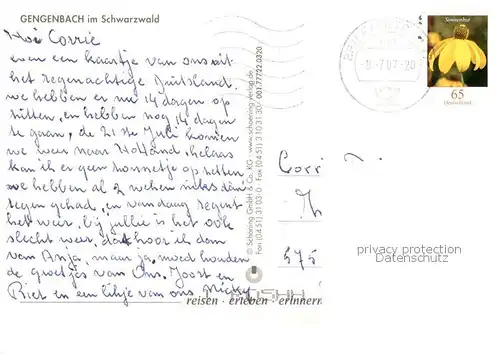 GENGENBACH im Schwarzwald
Hoi Corrie
even een kaartje van ons uit
het regenachtige Duitsland.
we hebben er nu 14 dagen op
zitten, en hebben nog 14 dagen
te gaan, de 21 ste Juli komen
we weer naar Holland, helaas
kan ik er geen zonnetje op zetten
we hebben al 2 weken niks dan
regen gehad, en vandaag regent
het weer, bij jullie is het ook
slecht weer, dat hoor ik dan
van Anja, maar ja, moed houden
de groetjes van Ons. Joost en
Riet en een likje van ons Micky
reisen · erleben · erinnern
© Schöning GmbH & Co. KG · www.schoening-verlag.de
Fon (04 51) 31 03-0 · Fax (04 51) 3 10 31 30 · 001.77722.0320
Sonnenhut
65
Deutschland
Corri
575
privacy protection
Datenschutz